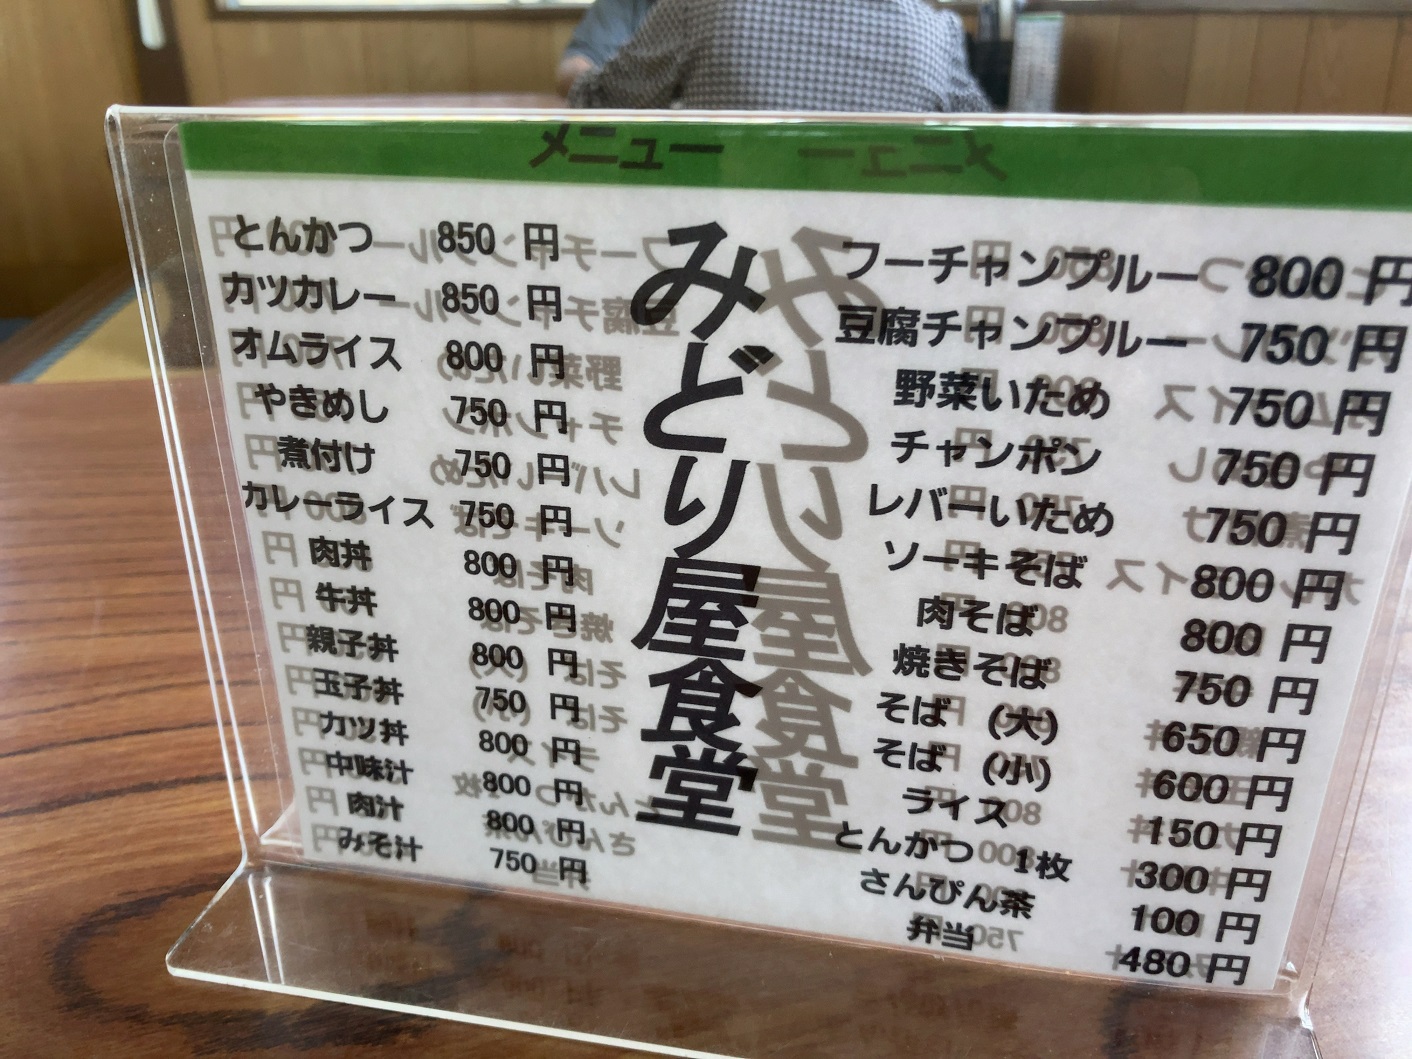 メニュー
とんかつ 850 円
カツカレー 850 円
オムライス 800 円
やきめし 750 円
煮付け 750 円
カレーライス 750 円
肉丼 800 円
牛丼 800 円
親子丼 800 円
玉子丼 750 円
カツ丼 800 円
中味汁 800 円
肉汁 800 円
みそ汁 750 円
みどり屋食堂
フーチャンプルー 800 円
豆腐チャンプルー 750 円
野菜いため 750 円
チャンポン 750 円
レバーいため 750 円
ソーキそば 800 円
肉そば 800 円
焼きそば 750 円
そば (大) 650 円
そば (小) 600 円
ライス 150 円
とんかつ 1枚 300 円
さんぴん茶 100 円
弁当 480 円